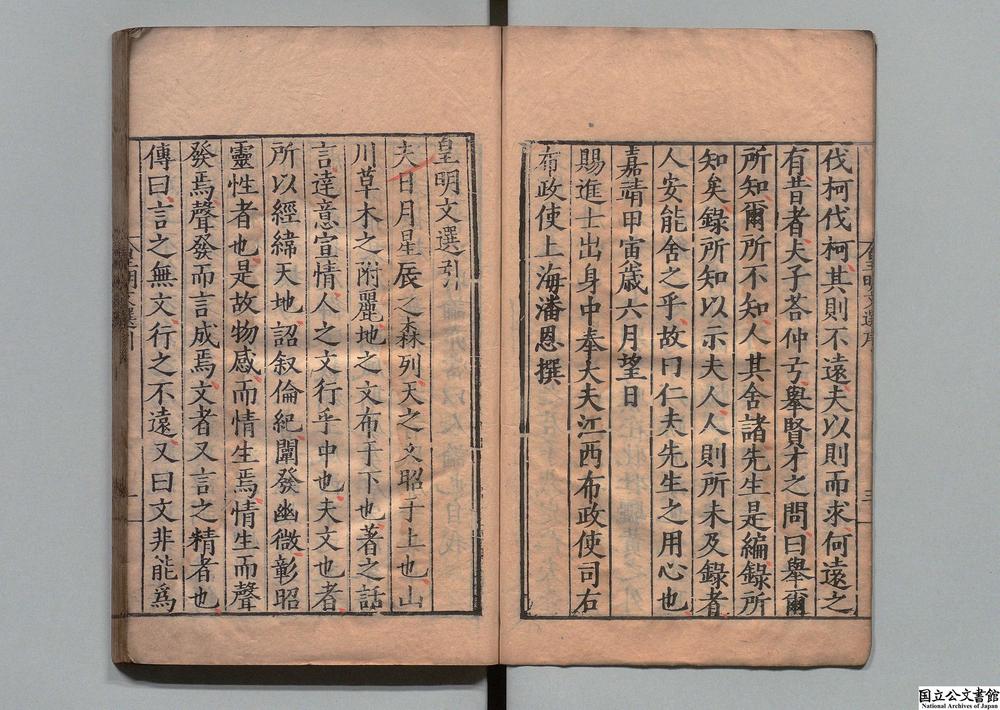 伐柯伐柯其則不遠夫以則而求何遠之
有昔者夫子荅仲弓舉賢才之問曰舉爾
所知爾所不知人其舍諸先生是編錄所
知矣錄所知以示夫人人則所未及錄者
人安能舍之乎故曰仁夫先生之用心也
嘉靖甲寅歲六月望日
賜進士出身中奉大夫江西布政使司右
布政使上海潘恩撰
皇明文選引
夫日月星辰之森列天之文昭于上也山
川草木之附麗地之文布于下也著之話
言達意宣情人之文行乎中也夫文也者
所以經緯天地詔叙倫紀闡發幽微彰昭
靈性者也是故物感而情生焉情生而聲
發焉聲發而言成焉文者又言之精者也
傳曰言之無文行之不遠又曰文非能爲
皇明文選引
一
国立公文書館
National Archives of Japan